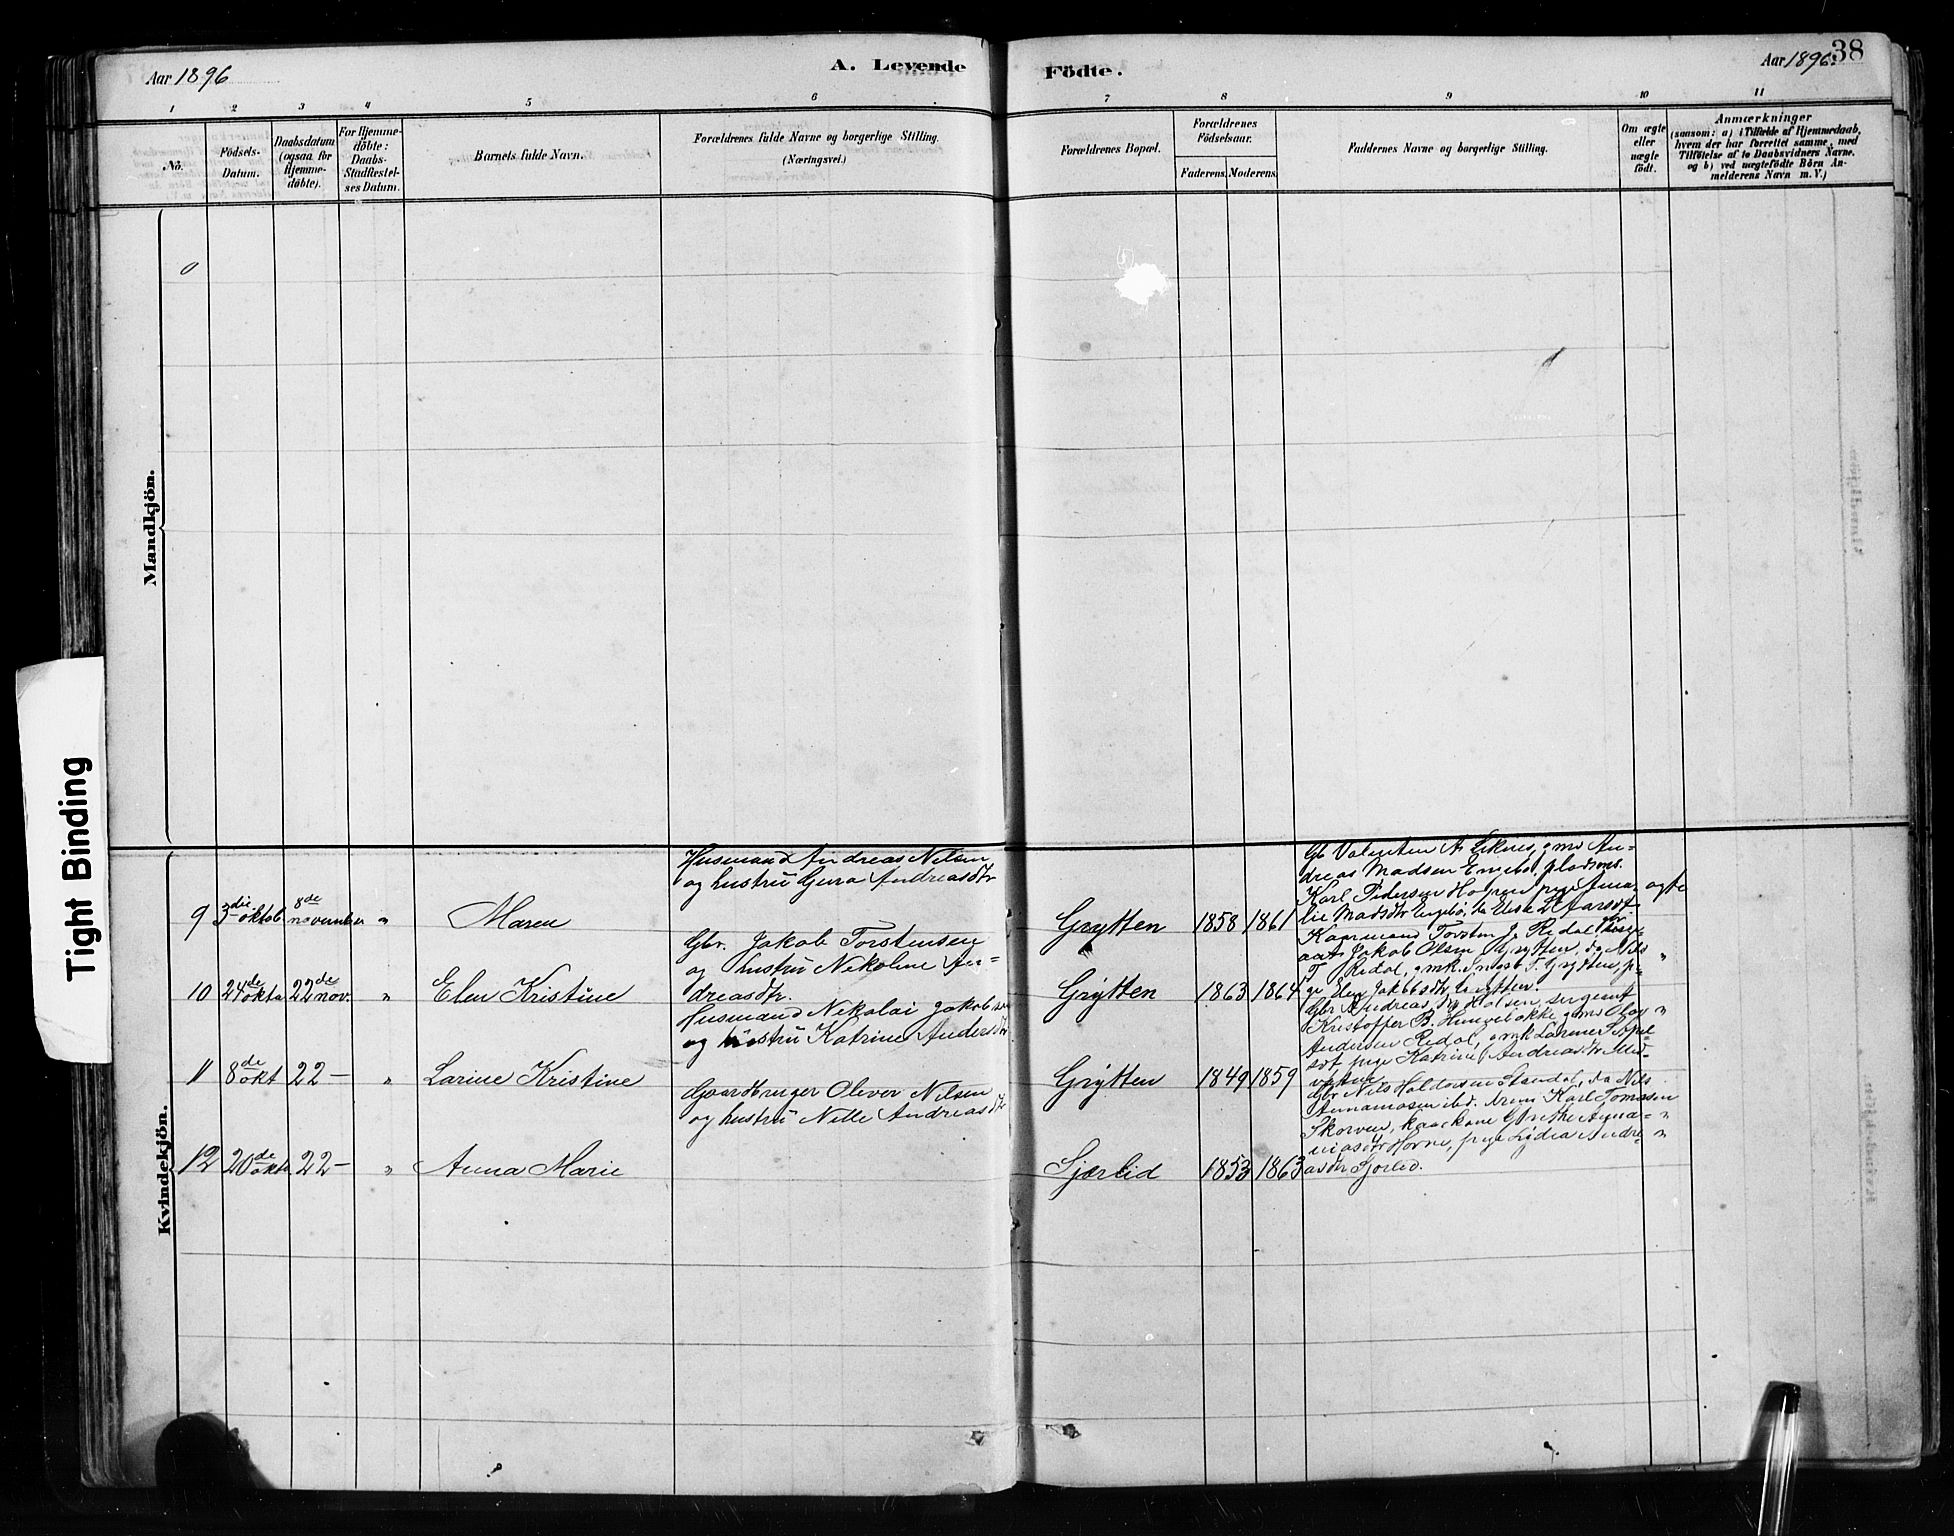 Aar 1896
A. Levende
Födte.
Aar 1896.
38
1
2
3
4
5
6
7
8
9
10
11
No.
Födsels-
Datum.
Daabsdatum
(ogsaa for
Hjemme-
döbte).
For Hjemme-
döbte:
Daabs-
Stadfæstel-
ses Datum.
Barnets fulde Navn.
Forældrenes fulde Navne og borgerlige Stilling.
(Næringsvei.)
Forældrenes Bopæl.
Forældrenes
Födselsaar.
Faderens.
Moderens.
Faddernes Navne og borgerlige Stilling.
Om ægte
eller
uægte
födt.
Anmærkninger
(saasom: a) i Tilfælde af Hjemmedaab,
hvem der har forrettet samme, med
Tilföielse af to Daabsvidners Navne,
og b) ved uægtefödte Börn An-
melderens Navn m. V.)
Mandkjön.
0
Tight Binding
Kvindekjön.
9
3die oktob
8de november
"
Maren
Husmand Andreas Nilsen
og hustru Gura Andreasdtr
Grytten
1858
1861
Gb Valentin A. Eknes, gmd An-
dreas Madsen Engebø,
Karl Pedersen pige Ama-
lie Madsdtr Engebø,
ægte
10
24de okto
22de nov.
"
Elen Kristine
Gbr. Jakob Torstensen
og hustru Nikoline An-
dreasdtr.
Grytten
1863
1864
Kaarmand Torsten J. Redal
Jakob Olsen Grytten, do Nils
T. Redal, gmk. Grytten, pi-
ge Elen Jakobsdtr Grytten.
"
11
8de okt
22 —
"
Larine Kristine
Husmand Nikolai Jakobsen
og hustru Katrine Andersdtr
Grytten
1849
1859
Gbr Andreas sergeant
Kristoffer B. gms Olav
Andersen Redal, gmk Larine
pige Katrine Andreasdtr
"
12
20de okt
22 —
"
Anna Marie
Gaardbruger Oliver Nilsen
og hustru Nille Andreasdtr
Sjørlid
1853
1863
Gbr Nils Haldorsen Standal, do Nils
ibd. Karl Tomassen
Skorven, kaarkone Grethe Anna-
niasdtr Hovne, pige Lydia Andre-
asdtr Sjørlid.
"